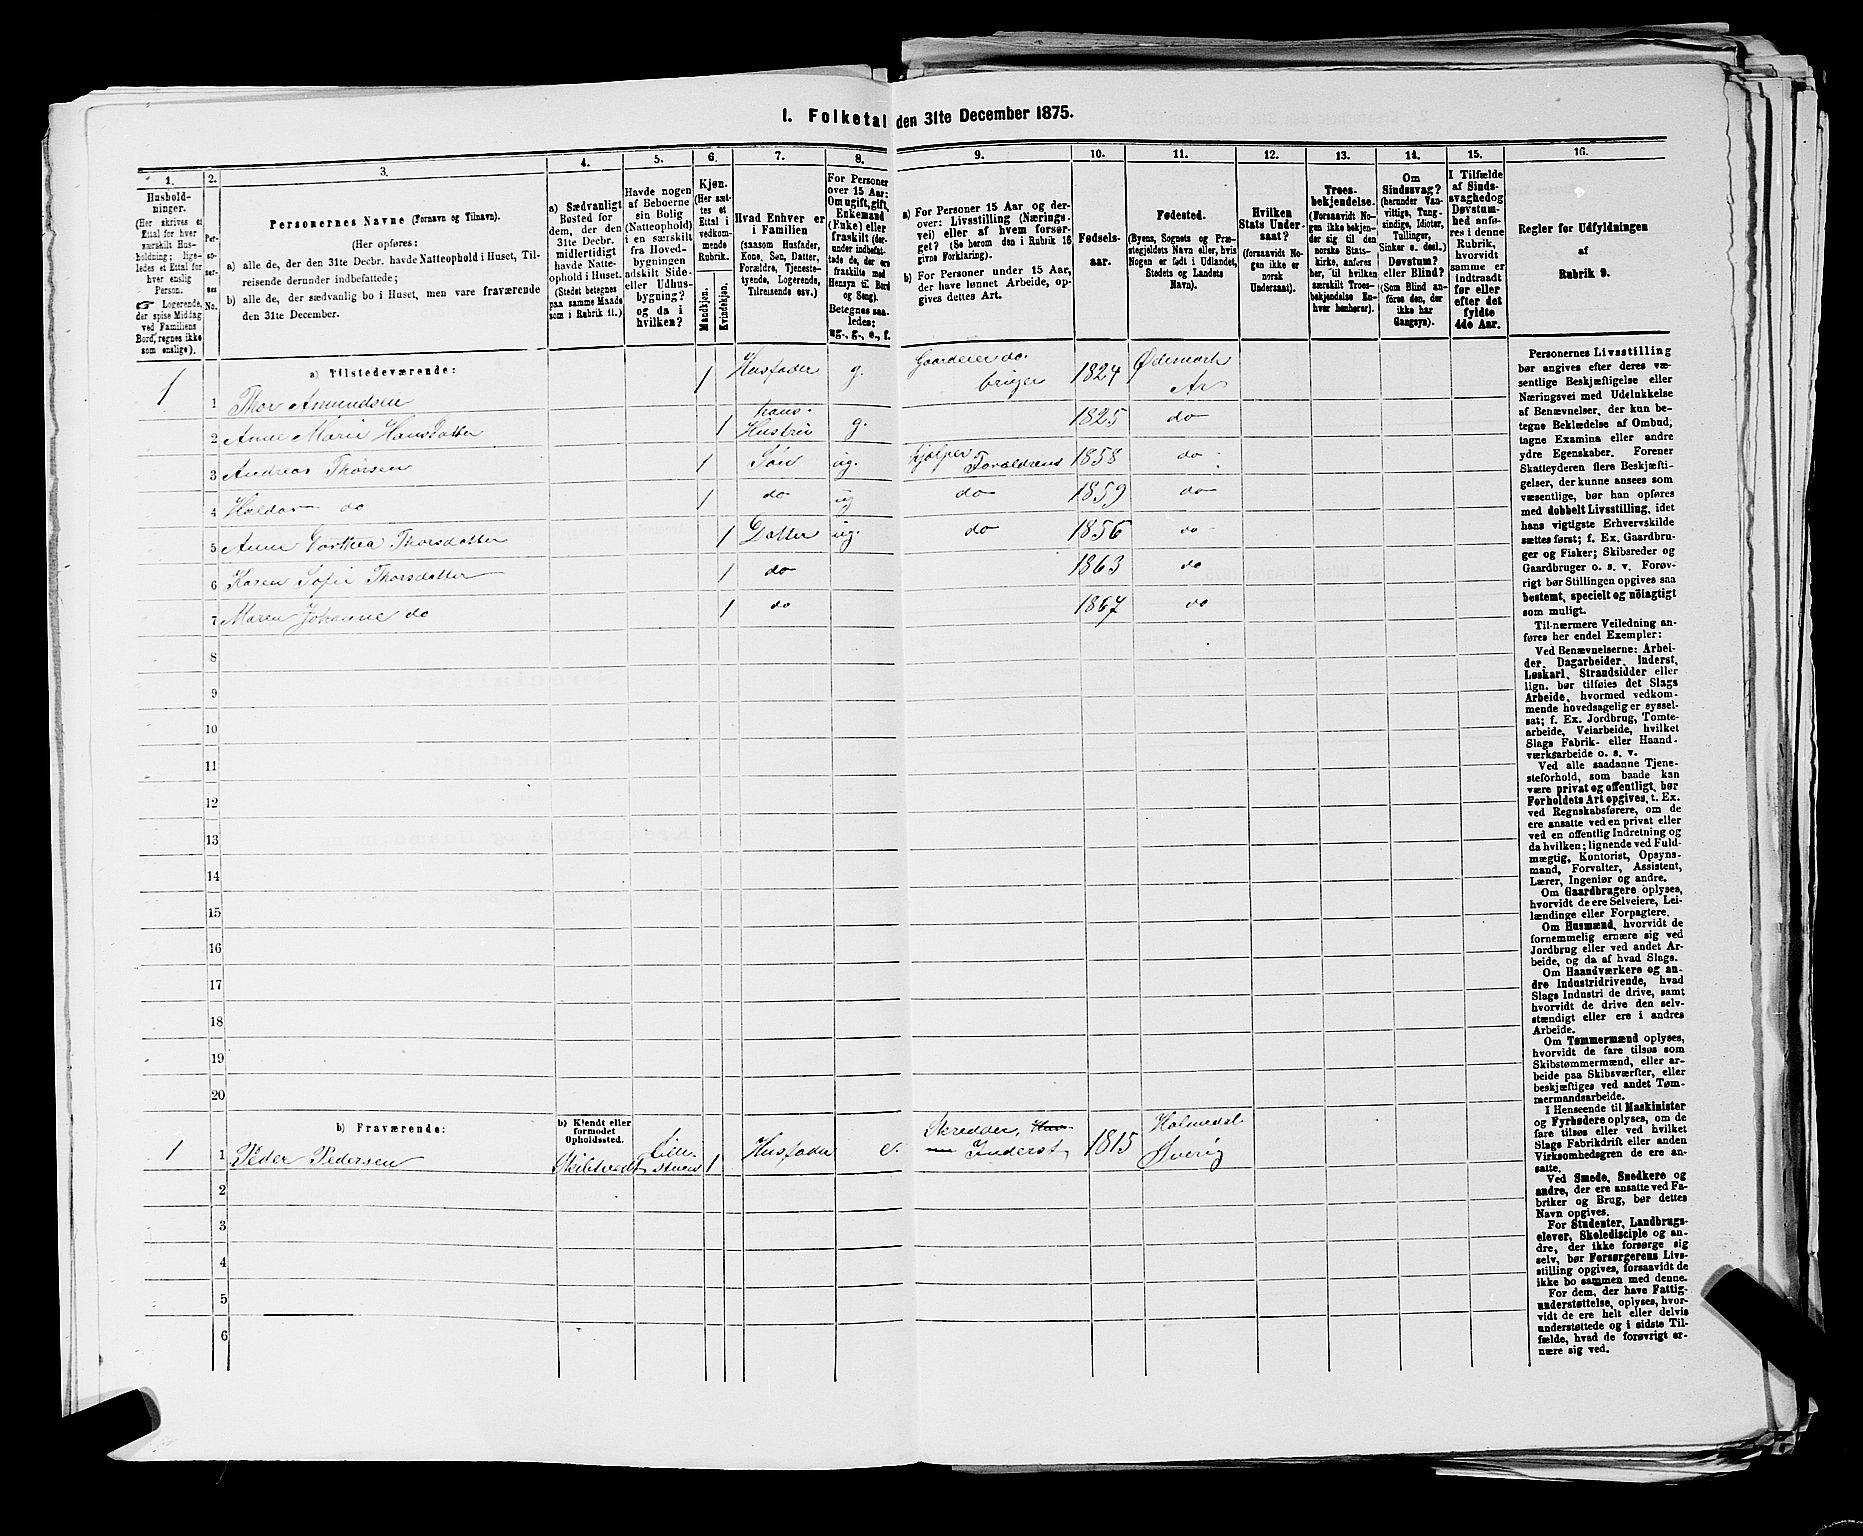 I. Folketal den 31te December 1875.
1.
2.
3.
4.
5.
6.
7.
8.
9.
10.
11.
12.
13.
14.
15.
16.
Hushold-
ninger.
(Her skrives et
Ettal for hver
særskilt Hus-
holdning; lige-
ledes et Ettal for
hver enslig
Person.
☞ Logerende,
der spise Middag
ved Familiens
Bord, regnes ikke
som enslige).
Per-
so-
ner-
nes
No.
Personernes Navne (Fornavn og Tilnavn).
(Her opføres:
a) alle de, der den 31te Decbr. havde Natteophold i Huset, Til-
reisende derunder indbefattede;
b) alle de, der sædvanlig bo i Huset, men vare fraværende
den 31te December.
a) Sædvanligt
Bosted for
dem, der den
31te Decbr.
midlertidigt
havde Natte-
ophold i Huset.
(Stedet betegnes
paa samme Maade
som i Rubrik 11.)
Havde nogen
af Beboerne
sin Bolig
(Natteophold)
i en særskilt
fra Hoved-
bygningen
adskilt Side-
eller Udhus-
bygning?
og da i
hvilken?
Kjøn.
(Her sæt-
tes et
Ettal i
vedkom-
mende
Rubrik.
Mandkjøn.
Kvindekjøn.
Hvad Enhver er
i Familien
(saasom Husfader,
Kone, Søn, Datter,
Forældre, Tjeneste-
tyende, Logerende,
Tilreisende osv.)
For Personer
over 15 Aar:
Om ugift, gift,
Enkemand
(Enke) eller
fraskilt (der-
under indbefat-
tede de, der ere
fraskilte med
Hensyn til Bord
og Seng).
Betegnes saa-
ledes:
ug., g., e., f.
a) For Personer 15 Aar og der-
over: Livsstilling (Nærings-
vei) eller af hvem forsør-
get? (Se herom den i Rubrik 16
givne Forklaring).
b) For Personer under 15 Aar,
der have lønnet Arbeide, op-
gives dettes Art.
Fødsels-
aar.
Fødested.
(Byens, Sognets og Præ-
stegjeldets Navn eller, hvis
Nogen er født i Udlandet,
Stedets og Landets
Navn).
Hvilken
Stats Under-
saat?
(forsaavidt No-
gen ikke er
norsk
Undersaat).
Troes-
bekjendelse.
(Forsaavidt No-
gen ikke bekjen-
der sig til den
norske Stats-
kirke, anføres
her, til hvilken
særskilt Troes-
bekjendelse En-
hver henhører).
Om
Sindssvag?
(herunder Van-
vittige, Tung-
sindige, Idioter,
Tullinger,
Sinker o. desl.)
Døvstum?
eller Blind?
(Som Blind an-
føres den, der
ikke har
Gangsyn).
I Tilfælde
af Sinds-
svaghed og
Døvstum-
hed anfø-
res i denne
Rubrik,
hvorvidt
samme er
indtraadt
før eller
efter det
fyldte
4de Aar.
Regler for Udfyldningen
af
Rubrik 9.
a) Tilstedeværende:
1 1 Thor Amundsen 1 Husfader g. Gaardeier do bruger 1824 Ødemark
2 Anne Marie Hansdatter 1 hans Hustru g. 1825 do
3 Andreas Thorsen 1 Søn ug. hjælper Forældrene 1858 do
4 Haldor do 1 do ug do 1859 do
5 Anne Dorthea Thorsdatter 1 Datter ug. do 1856 do
6 Karen Sofie Thorsdatter 1 do 1863 do
7 Maren Johanne do 1 do 1867 do
8
9
10
11
12
13
14
15
16
17
18
19
20
b) Fraværende:
b) Kjendt eller
formodet
Opholdssted.
1 1 Peder Pedersen 1 Husfader e. Skredder, Inderst 1815 Holmedal Sverig
2
3
4
5
6
Personernes Livsstilling
bør angives efter deres væ-
sentlige Beskjæftigelse eller
Næringsvei med Udelukkelse
af Benævnelser, der kun be-
tegne Beklædelse af Ombud,
tagne Examina eller andre
ydre Egenskaber. Forener
Skatteyderen flere Beskjæfti-
gelser, der kunne ansees som
væsentlige, bør han opføres
med dobbelt Livsstilling, idet
hans vigtigste Erhvervskilde
sættes først; f. Ex. Gaardbru-
ger og Fisker; Skibsreder og
Gaardbruger o. s. v. Forøv-
rigt bør Stillingen opgives saa
bestemt, specielt og nøiagtigt
som muligt.
Til nærmere Veiledning an-
føres her endel Exempler:
Ved Benævnelserne: Arbei-
der, Dagarbeider, Inderst,
Løskarl, Strandsidder eller
lign. bør tilføies det Slags
Arbeide, hvormed vedkom-
mende hovedsagelig er syssel-
sat; f. Ex. Jordbrug, Tomte-
arbeide, Veiarbeide, hvilket
Slags Fabrik- eller Haand-
værksarbeide o. s. v.
Ved alle saadanne Tjene-
steforhold, som baade kan
være privat og offentligt, bør
Forholdets Art opgives, t. Ex.
ved Regnskabsførere, om de
ere ansatte ved en privat eller
ved en offentlig Indretning og
da hvilken; lignende ved Fuld-
mægtig, Kontorist, Opsyns-
mand, Forvalter, Assistent,
Lærer, Ingeniør og andre.
Om Gaardbrugere oplyses,
hvorvidt de ere Selveiere, Lei-
lændinge eller Forpagtere.
Om Husmænd, hvorvidt de
fornemmelig ernære sig ved
Jordbrug eller ved andet Ar-
beide, og da af hvad Slags.
Om Haandværkere og an-
dre Industridrivende, hvad
Slags Industri de drive, samt
hvorvidt de drive den selv-
stændigt eller ere i andres
Arbeide.
Om Tømmermænd oplyses,
hvorvidt de fare tilsøs som
Skibstømmermænd, eller ar-
beide paa Skibsværfter, eller
beskjæftiges ved andet Tøm-
mermandsarbeide.
I Henseende til Maskinister
og Fyrbødere oplyses, om de
fare tilsøs eller ved hvilket
Slags Fabrikdrift eller anden
Virksomhedsgren de ere an-
satte.
Ved Smede, Snedkere og
andre, der ere ansatte ved Fa-
briker og Brug, bør dettes
Navn opgives.
For Studenter, Landbrugs-
elever, Skoledisciple og an-
dre, der ikke forsørge sig
selv, bør Forsørgerens Livs-
stilling opgives, forsaavidt de
ikke bo sammen med denne.
For dem, der have Fattig-
understøttelse, oplyses, hvor-
vidt de ere helt eller delvis
understøttede og i sidste Til-
fælde, hvad de forøvrigt er-
nære sig ved.